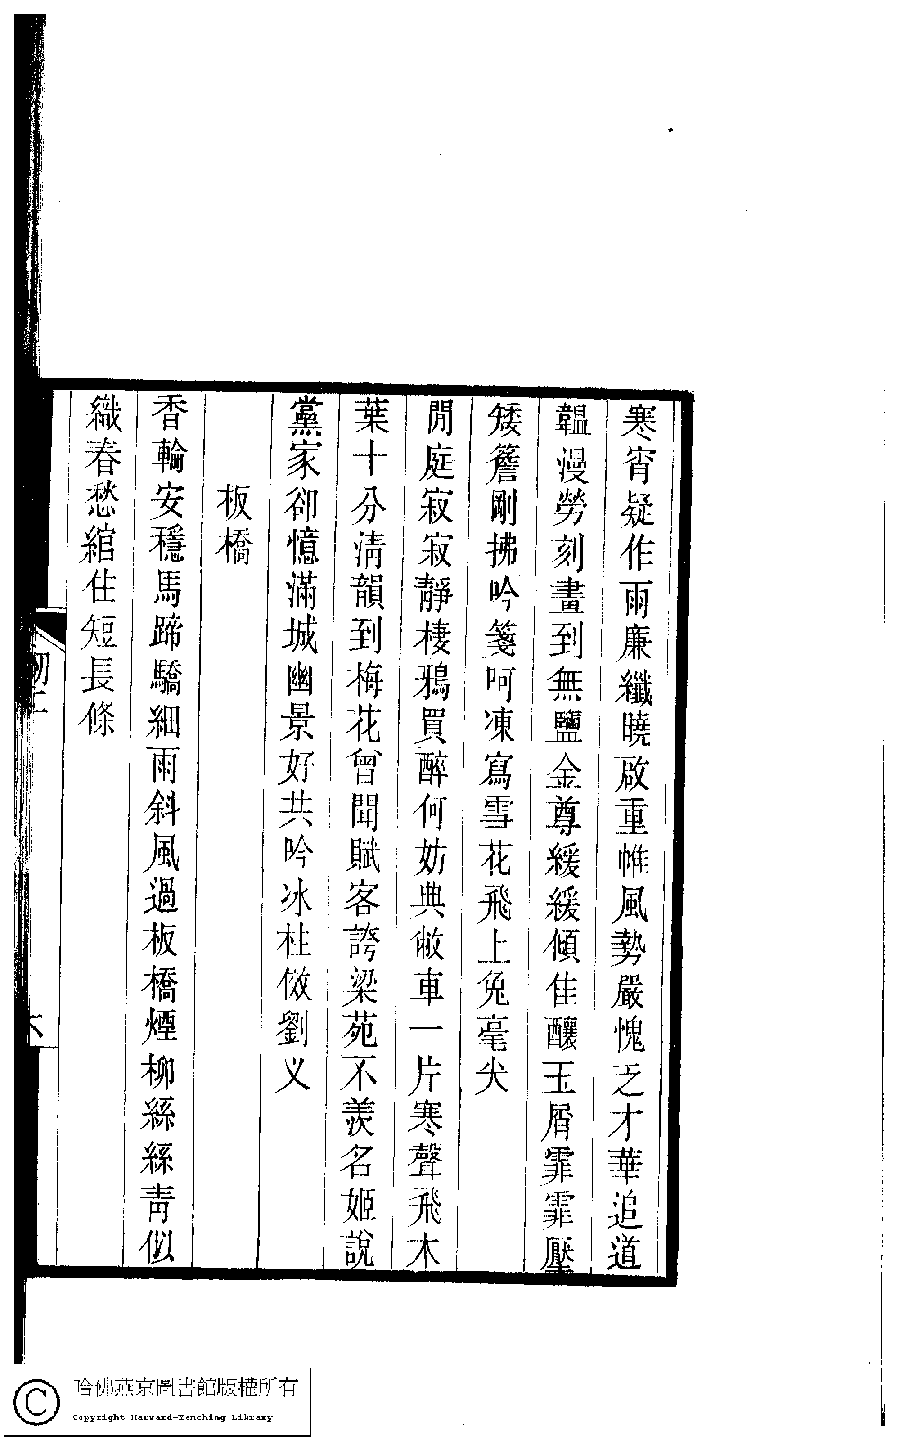 寒宵疑作雨廉纖曉啟重帷風勢嚴愧乏才華追道
韞漫勞刻畫到無鹽金尊緩緩傾佳釀玉屑霏霏壓
矮簷剛拂吟箋呵凍寫雪花飛上兔毫尖
閒庭寂寂靜棲鴉買醉何妨典敝車一片寒聲飛木
葉十分清韻到梅花曾聞賦客誇梁苑不羨名姬說
黨家卻憶滿城幽景好共吟冰柱倣劉义
板橋
香輪安穩馬蹄驕細雨斜風過板橋煙柳絲絲青似
織春愁綰住短長條
哈佛燕京圖書館版權所有
Copyright Harvard-Yenching Library